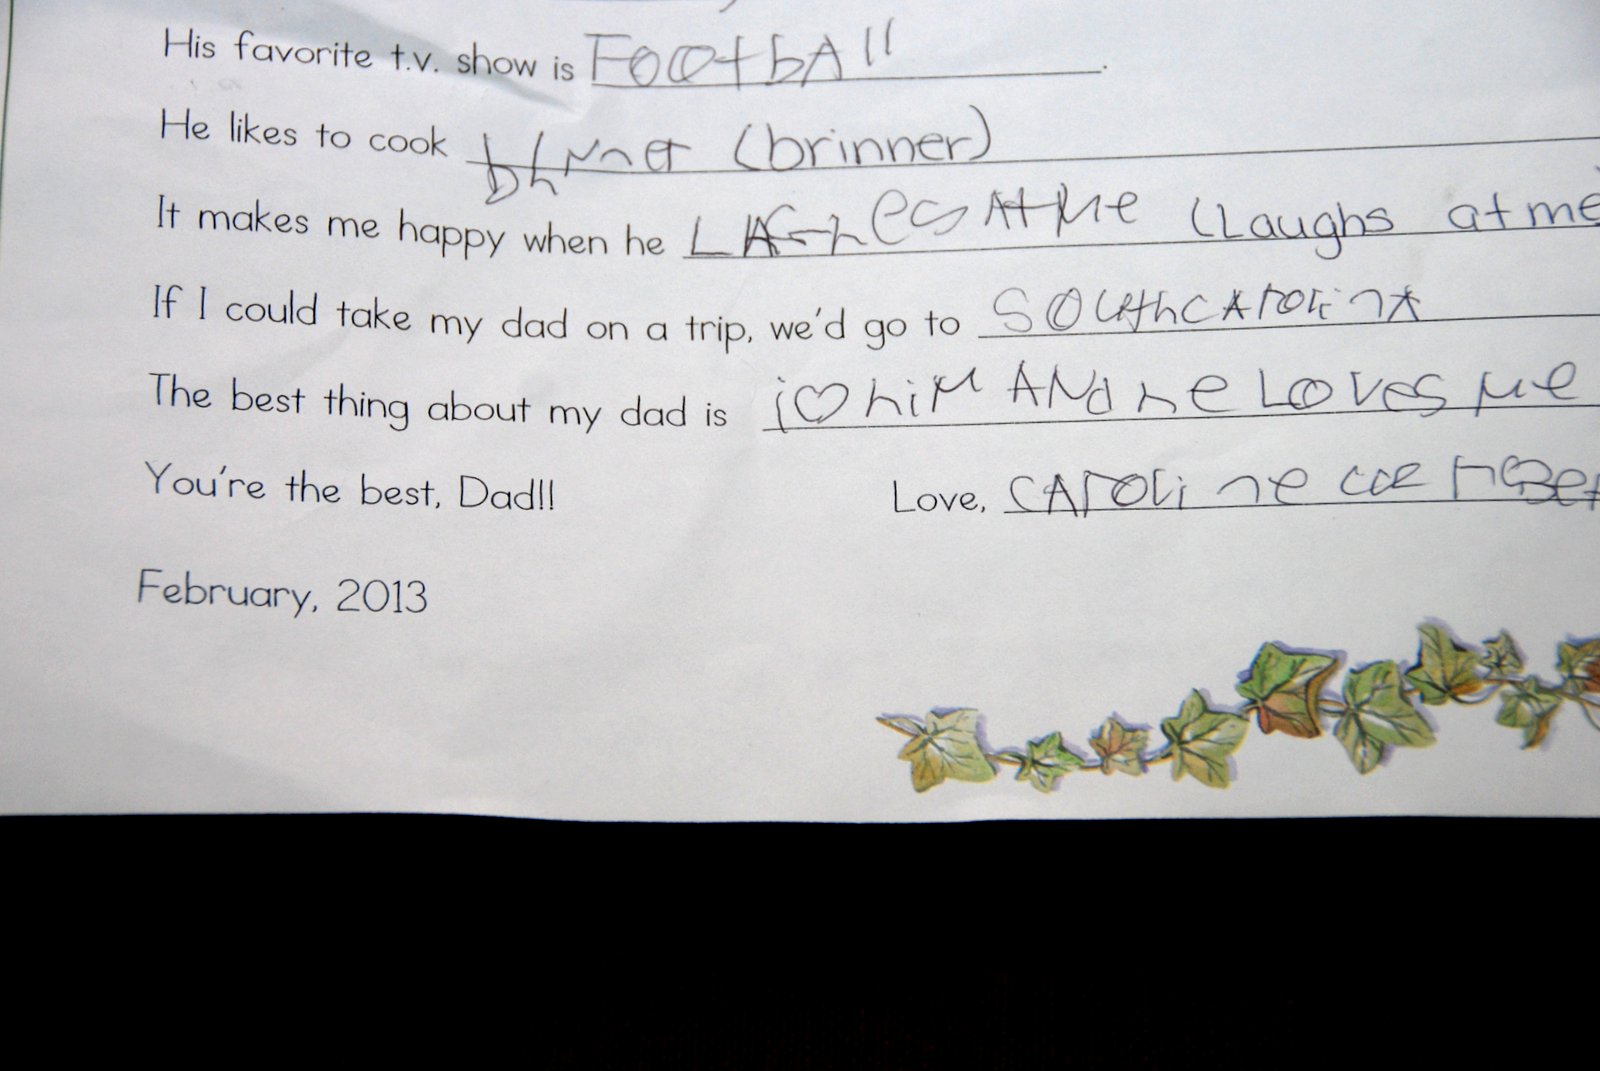 His favorite t.v. show is FOOtbAll.
He likes to cook (brinner)
It makes me happy when he LAGhes At Me (Laughs at me
If I could take my dad on a trip, we'd go to SOUthCAroliNA
The best thing about my dad is i ♡ hiM ANd he LOVes Me
You're the best, Dad!! Love, CAroline
February, 2013